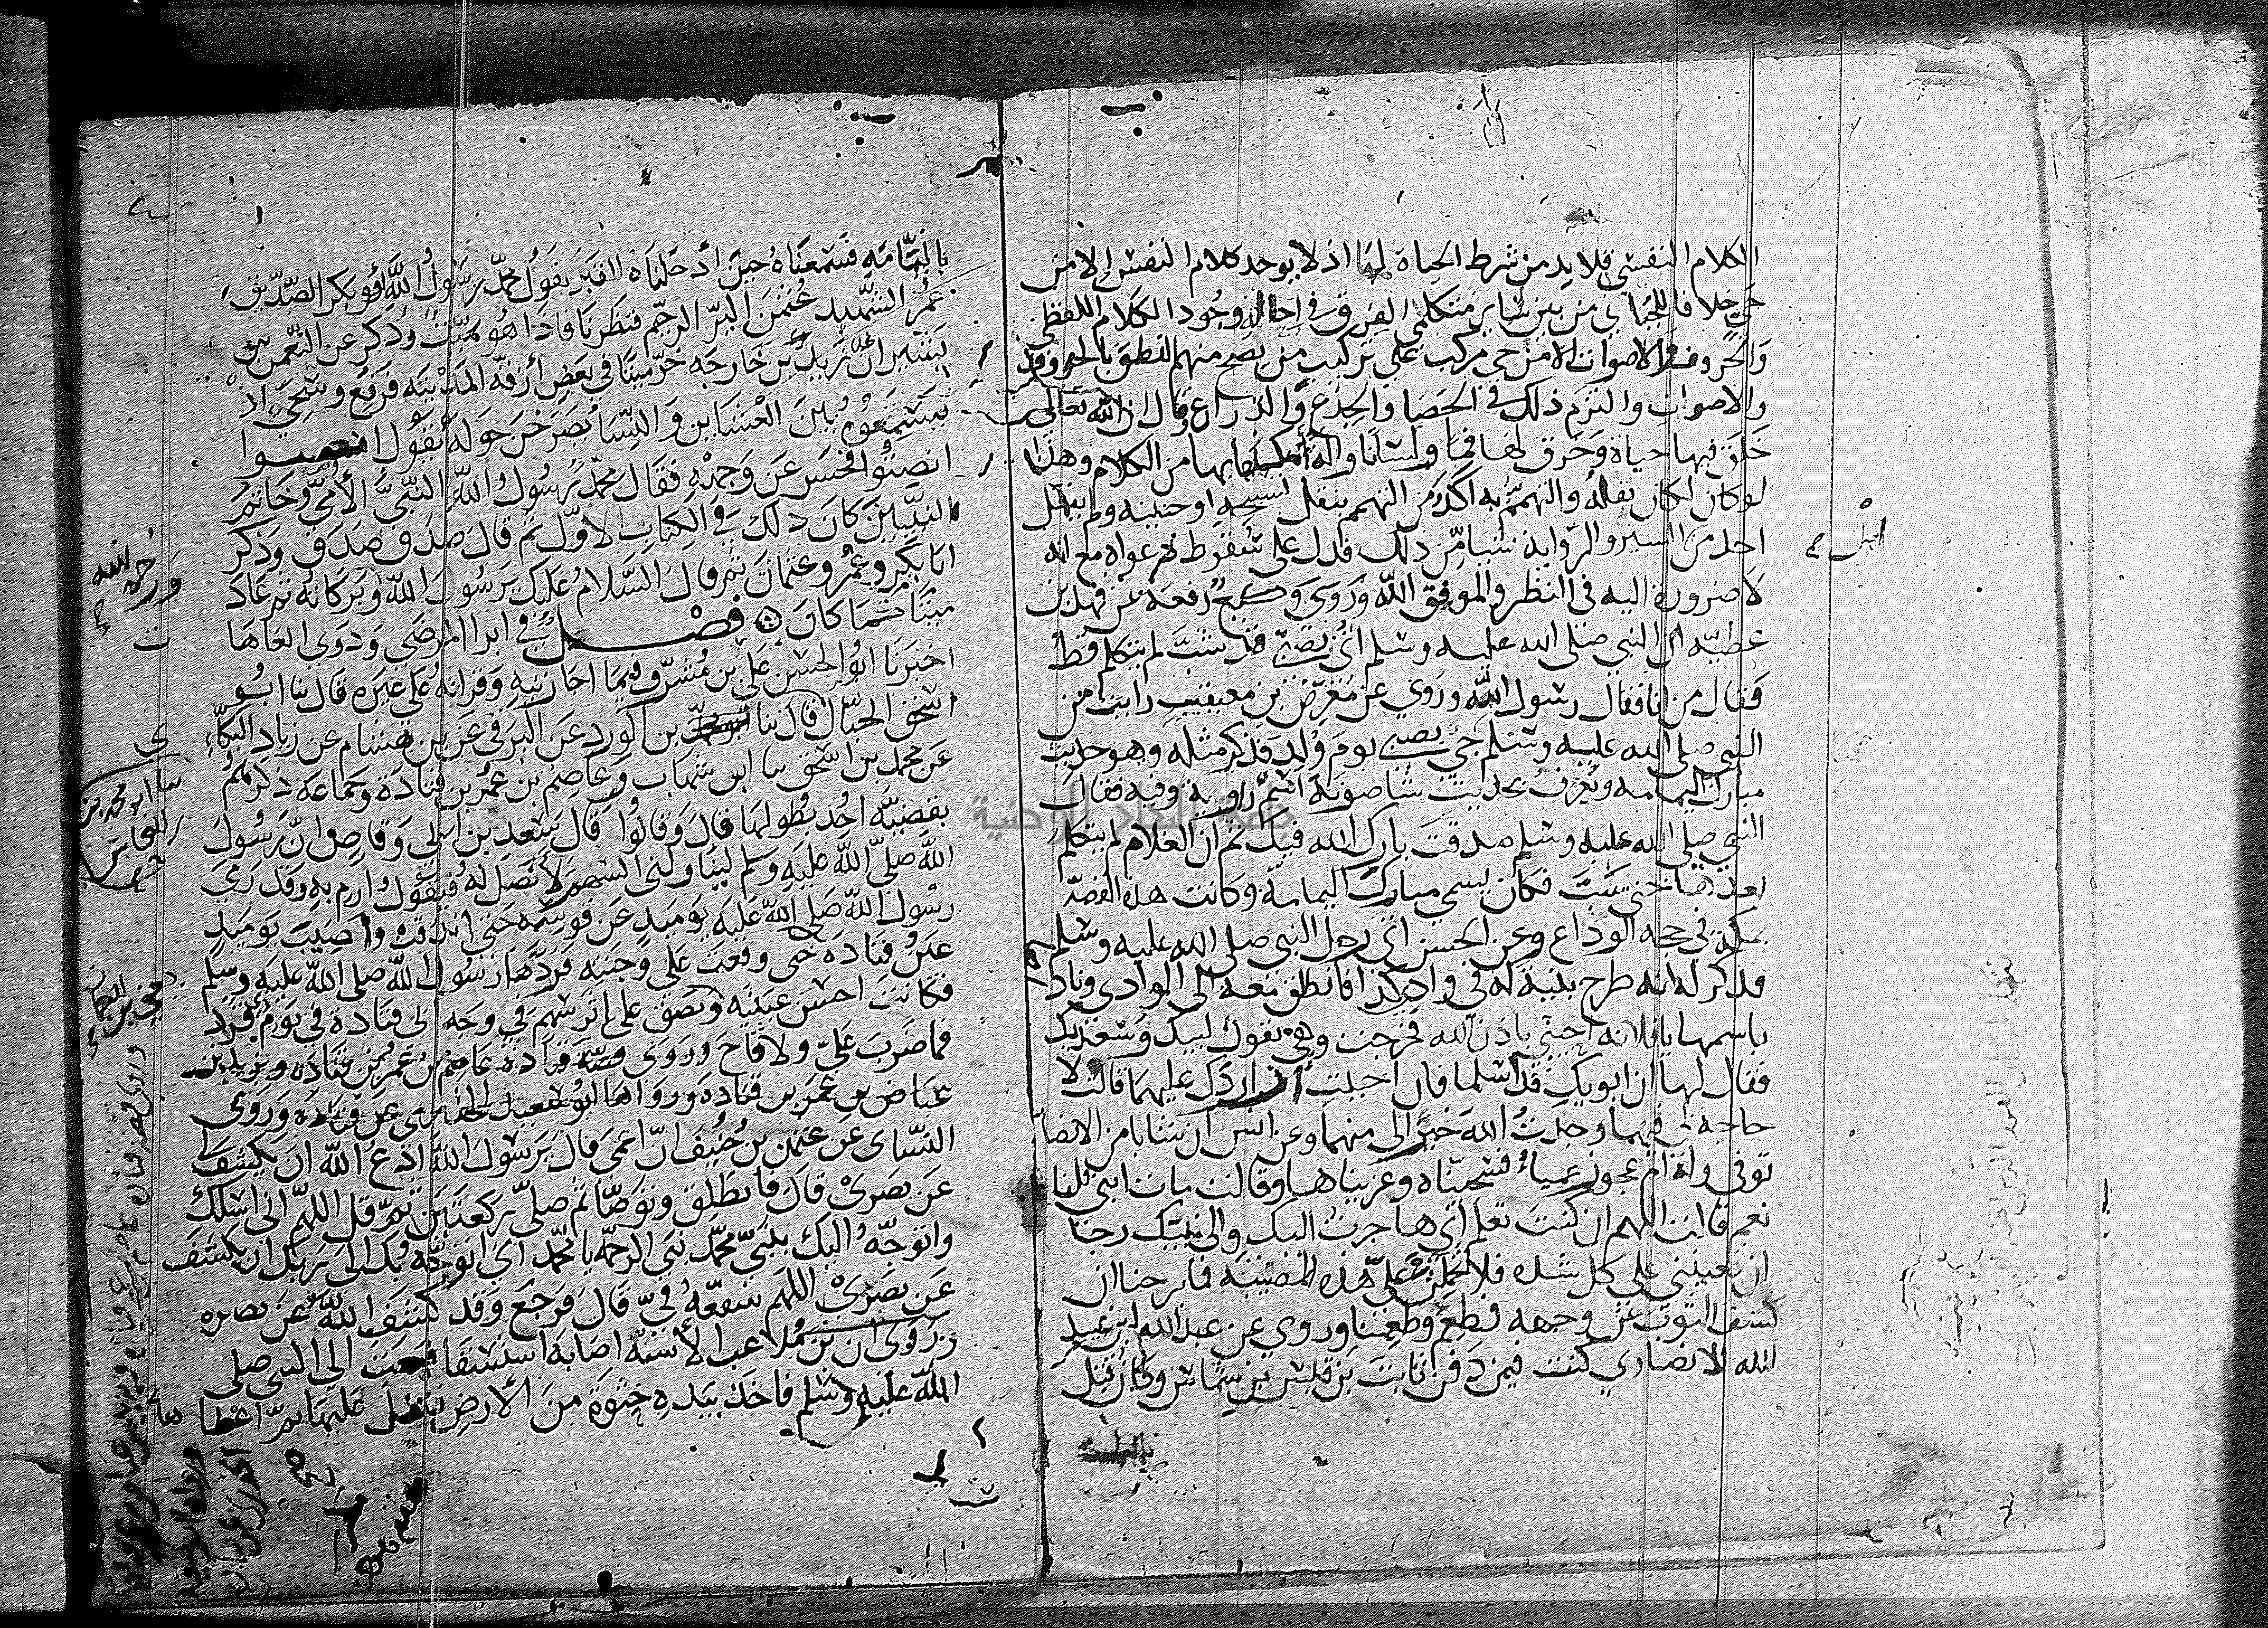 الكلام النفسي فلا بد من شرط الحياة لها اذ لا يوجد كلام النفس الا من
حي خلافا للجبائي من بين سائر متكلمي الفرق في احالته وجود الكلام اللفظي
والحروف والاصوات الا من حي مركب على تركيب من يصح منهم النطق بالحروف
والاصوات والتزم ذلك في الحصا والجذع والذراع وقال ان الله تعالى
خلق فيها حياة وخرق لها فما ولسانا وآلة امكنها بها من الكلام وهذا
لو كان لكان نقله والتهمم به اكد من التهمم بنقل تسبيحه او حنينه ولم ينقل
احد من السير والرواية شيا من ذلك فدل على سقوط دعواه مع انه
لا ضرورة اليه في النظر والموفق الله وروى وكيع رفعه عن فهد بن
عطية ان النبي صلى الله عليه وسلم اتي بصبي قد شب لم يتكلم قط
فقال من انا فقال رسول الله وروي عن معرض بن معيقيب رايت من
النبي صلى الله عليه وسلم جي بصبي يوم ولد فذكر مثله وهو حديث
مبارك اليمامة ويعرف بحديث شاصونة اسم راويه وفيه فقال
النبي صلى الله عليه وسلم صدقت بارك الله فيك ثم ان الغلام لم يتكلم
بعدها حتى شب فكان يسمي مبارك اليمامة وكانت هذه القصة
بمكة في حجة الوداع وعن الحسن اتى رجل النبي صلى الله عليه وسلم
فذكر له انه طرح بنية له في وادي كذا فانطلق معه الى الوادي وناد
باسمها يا فلانة احيي باذن الله فخرجت وهي تقول لبيك وسعديك
فقال لها ان ابويك قد اسلما فان احببت ان اردك عليهما قالت لا
حاجة لي فيهما وجدت الله خيرا لي منهما وعن انس ان شابا من الانصار
توفي وله ام عجوز عمياء فسجيناه وعزيناها وقالت مات ابني قلنا
نعم قالت اللهم ان كنت تعلم اني هاجرت اليك والى نبيك رجا
ان تعينني على كل شدة فلا تحملن علي هذه المصيبة فما برحنا ان
كشف الثوب عن وجهه فطعم وطعمنا وروي عن عبد الله بن عبيد
الله الانصاري كنت فيمن دفن ثابت بن قيس بن شماس وكان قتل
باليمامة فسمعناه حين ادخلناه القبر يقول محمد رسول الله ابو بكر الصديق
عمر الشهيد عثمن البر الرحيم فنظرنا فاذا هو ميت وذكر عن النعمن بن
بشير ان زيد بن خارجة خر ميتا في بعض ازقة المدينة فرفع وسجي اذ
سمعوه بين العشاين والنسا يصرخن حوله يقول انصتوا
انصتوا فحسر عن وجهه فقال محمد رسول الله النبي الأمي وخاتم
النبيين كان ذلك في الكتاب الاول ثم قال صدق صدق وذكر
ابا بكر وعمر وعثمان ثم قال السلام عليك يرسول الله وبركاته ثم عاد
ورحمة الله
ميتا كما كان فصل في ابرا المرضى وذوي العاها
ت
اخبرنا ابو الحسن علي بن مشرف فيما اجازنيه وقراته على غيره قال نا ابو
اسحق الحبال قال نا بن الورد عن البرقي عن بن هشام عن زياد البكاء
ي
نا ابو محمد بن النحاس
عن محمد بن اسحق نا ابن شهاب وعاصم بن عمر بن قتادة وجماعة ذكرهم
بقضية احد بطولها قال وقالوا قال سعد بن ابي وقاص ان رسول
الله صلى الله عليه وسلم ليناولني السهم لا نصل له فيقول ارم به وقد رمى
رسول الله صلى الله عليه يوميذ عن قوسه حتى اندقت واصيب يوميذ
عين قتادة حتى وقعت على وجنته فردها رسول الله صلى الله عليه وسلم
فكانت احسن عينيه وبصق على اثر سهم في وجه ابي قتادة في يوم ذي قرد
فما ضرب علي ولا قاح وروى قصة قتادة عاصم بن عمر بن قتادة ويزيد بن
عياض بن عمر بن قتادة ورواها ابو سعيد الخدري عن قتادة وروى
النساي عن عثمن بن حنيف ان اعمى قال يرسول الله ادع الله ان يكشف
عن بصري قال فانطلق وتوضا ثم صلى ركعتين ثم قل اللهم اني اسلك
واتوجه اليك بنبي محمد نبي الرحمة يا محمد اني اتوجه بك الى ربك ان يكشف
عن بصري اللهم شفعه في قال فرجع وقد كشف الله عن بصره
وروى ان بن ملاعب الأسنة اصابه استسقا فبعث الى النبي صلى
الله عليه وسلم فاخذ بيده حثوة من الأرض فتفل عليها ثم اعطاها